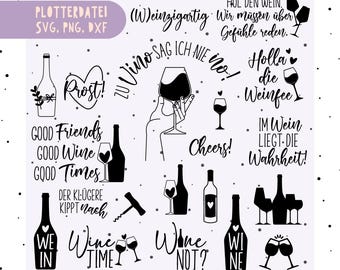 PLOTTERDATEI
SVG, PNG, DXF
(W)einzigartig
HOL DEN WEIN.
Wir müssen über
Gefühle reden.
Prost!
ZU Vino SAG ICH NIE no!
Holla
die
Weinfee
GOOD Friends
GOOD Wine
GOOD Times
Cheers!
IM Wein
LIEGT DIE
Wahrheit!
DER KLÜGERE
KIPPT nach
WE
IN
Wine
TIME
Wine
NOT?
WI
NE